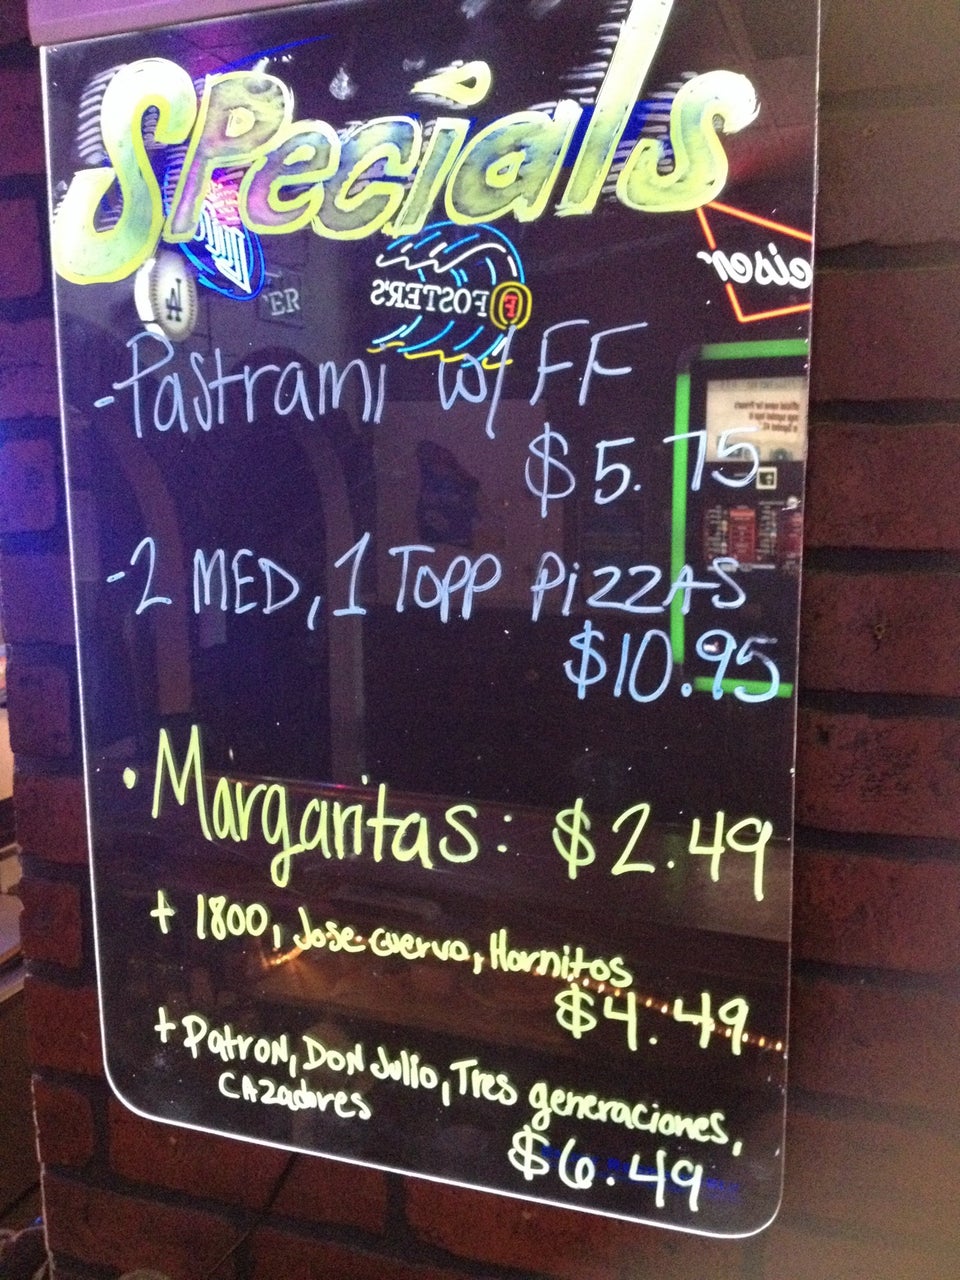 SPecials
LA
'ER
FOSTER'S
eiser
-Pastrami w/ FF
$5.75
-2 MED, 1 TOPP PizzAS
$10.95
• Margaritas: $2.49
+ 1800, Jose cuervo, Hornitos
$4.49
+ PatroN, DON Julio, Tres generaciones,
CAzadores
$6.49